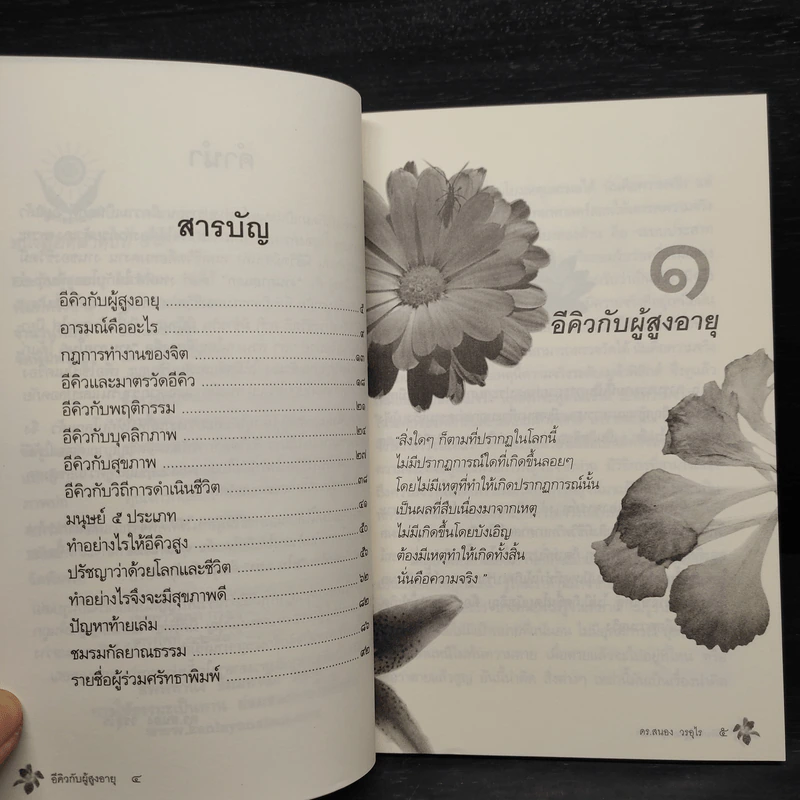 สารบัญ
อีคิวกับผู้สูงอายุ ๕
อารมณ์คืออะไร ๙
กฎการทำงานของจิต ๑๓
อีคิวและมาตรวัดอีคิว ๑๘
อีคิวกับพฤติกรรม ๒๑
อีคิวกับบุคลิกภาพ ๒๔
อีคิวกับสุขภาพ ๒๗
อีคิวกับวิถีการดำเนินชีวิต ๓๘
มนุษย์ ๕ ประเภท ๔๑
ทำอย่างไรให้อีคิวสูง ๕๐
ปรัชญาว่าด้วยโลกและชีวิต ๕๖
ทำอย่างไรจึงจะมีสุขภาพดี ๖๒
ปัญหาท้ายเล่ม ๘๒
ชมรมกัลยาณธรรม ๘๖
รายชื่อผู้ร่วมศรัทธาพิมพ์ ๙๒
อีคิวกับผู้สูงอายุ ๔
๑
อีคิวกับผู้สูงอายุ
"สิ่งใดๆ ก็ตามที่ปรากฏในโลกนี้
ไม่มีปรากฏการณ์ใดที่เกิดขึ้นลอยๆ
โดยไม่มีเหตุที่ทำให้เกิดปรากฏการณ์นั้น
เป็นผลที่สืบเนื่องมาจากเหตุ
ไม่มีเกิดขึ้นโดยบังเอิญ
ต้องมีเหตุทำให้เกิดทั้งสิ้น
นั่นคือความจริง "
ดร.สนอง วรอุไร ๕